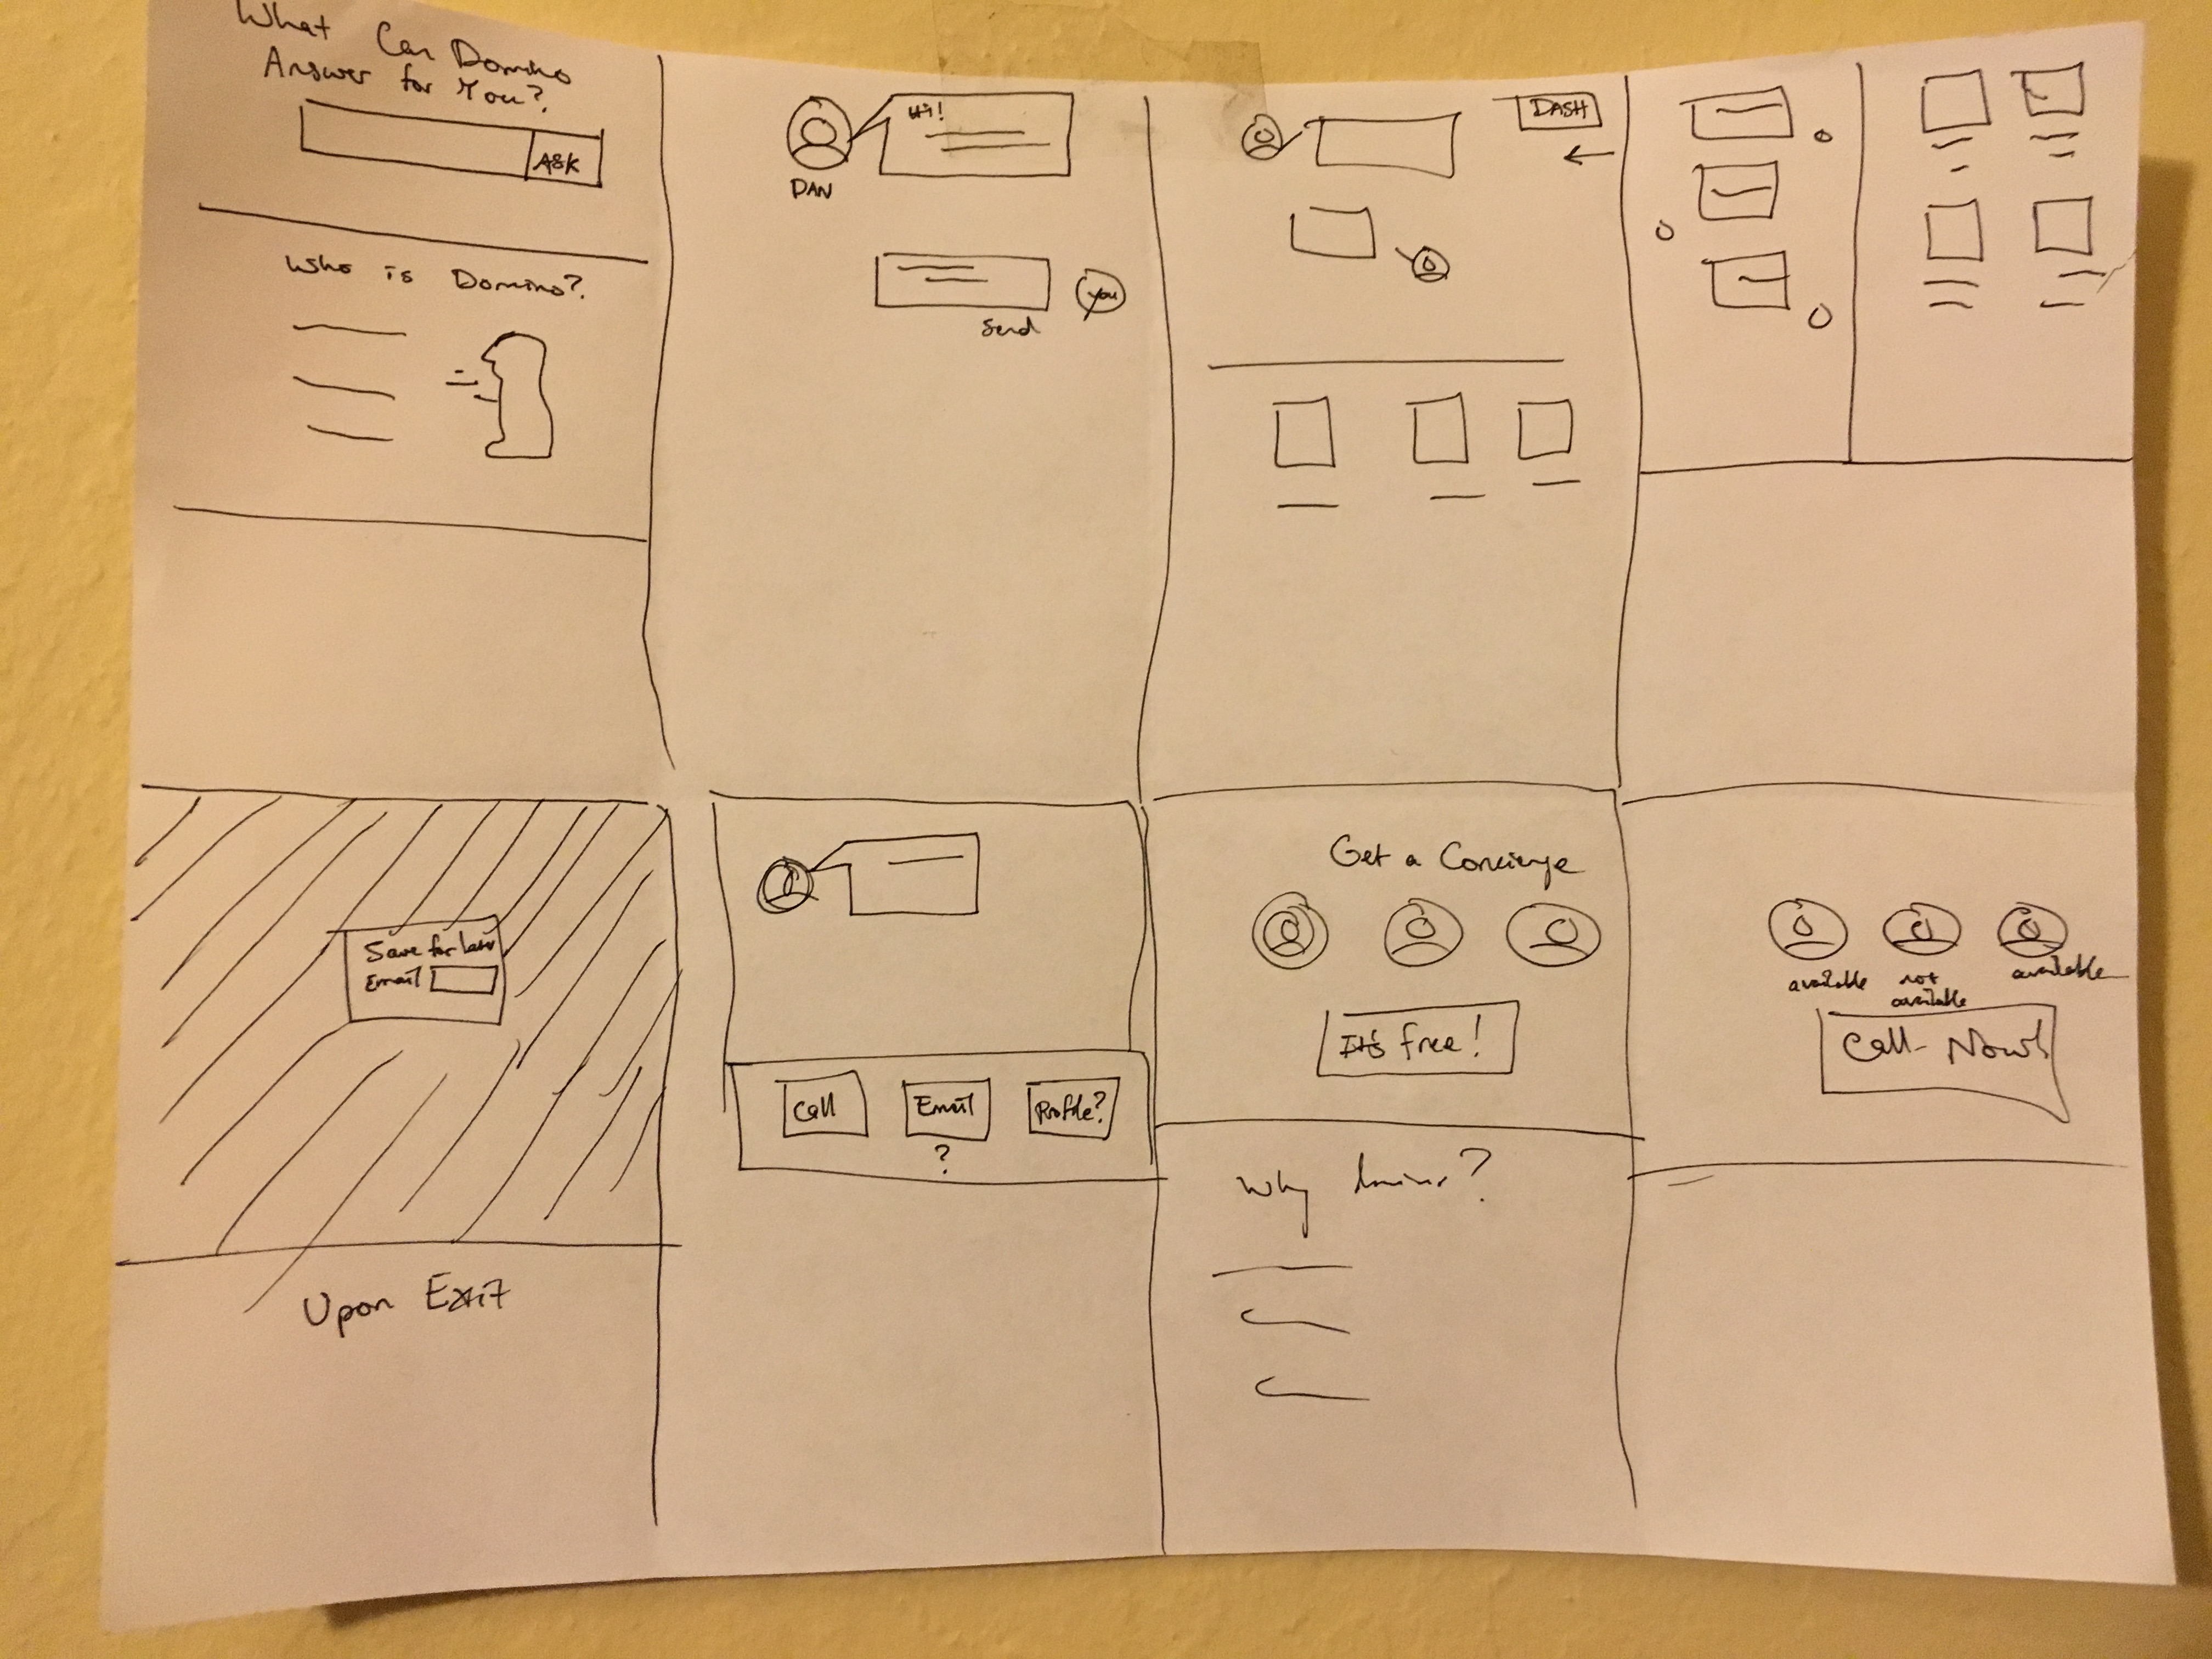 What Can Domino
Answer for You?
ASK
Who is Domino?
Hi!
DAN
you
Send
DASH
Save for later
Email
Upon Exit
Call
Email
Profile?
?
Get a Concierge
It's free!
Why
?
available
not
available
available
Call Now!